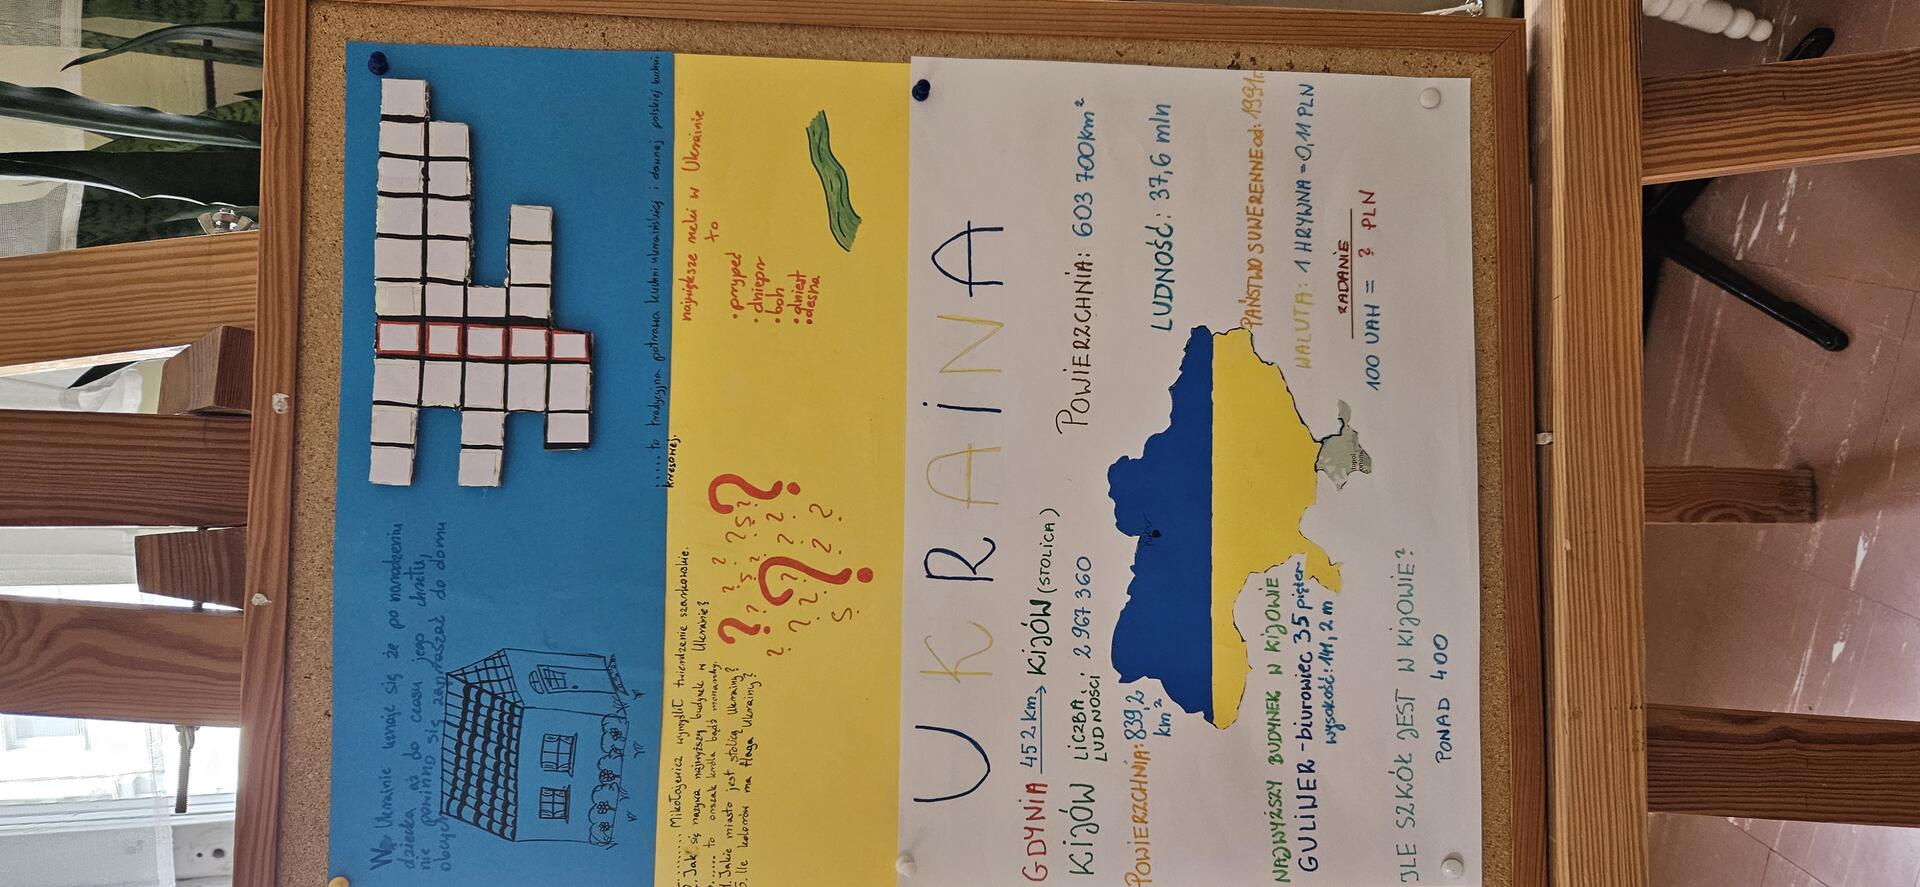 UKRAINA
GDYNIA 452km → KIJÓW (STOLICA)
POWIERZCHNIA: 603 700km²
KIJÓW LICZBA LUDNOŚCI: 2 967 360
LUDNOŚĆ: 37,6 mln
POWIERZCHNIA: 839,2 km²
PAŃSTWO SUWERENNE od: 1991r.
WALUTA: 1 HRYWNA = 0,11 PLN
ZADANIE
100 UAH = ? PLN
NAJWYŻSZY BUDYNEK W KIJOWIE
GULIWER - biurowiec 35 pięter
wysokość: 141,2 m
JLE SZKÓŁ JEST W KIJOWIE?
PONAD 400
W Ukrainie uznaje się że po narodzeniu
dziecka aż do czasu jego chrztu,
nie powinno się zapraszać do domu
obcych
..... to tradycyjna potrawa kuchni ukraińskiej i dawnej polskiej kuchni
kresowej.
największe rzeki w Ukrainie
to
• prypeć
• dniepr
• boh
• dniest
• desna
......... Mikołajewicz wymyślił twierdzenie szarkowskie.
Jak się nazywa najwyższy budynek w Ukrainie?
...... to orszak króla bądź monarchy.
4. Jakie miasto jest stolicą Ukrainy?
5. Ile kolorów ma flaga Ukrainy?